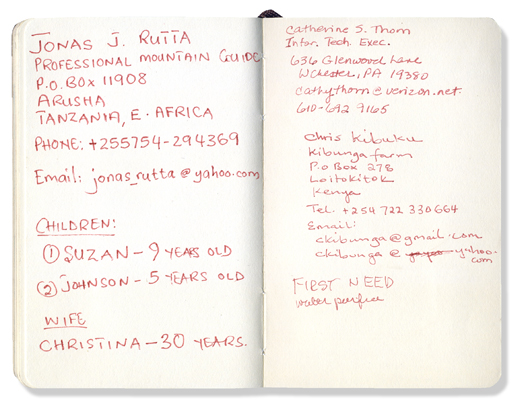 JONAS J. RUTTA
PROFESSIONAL MOUNTAIN GUIDE
P.O. BOX 11908
ARUSHA
TANZANIA, E. AFRICA
PHONE: +255754-294369
Email: jonas_rutta@yahoo.com
CHILDREN:
① SUZAN - 9 YEARS OLD
② JOHNSON - 5 YEARS OLD
WIFE
CHRISTINA - 30 YEARS.
Catherine S. Thorn
Infor. Tech. Exec.
636 Glenwood Lane
W Chester, PA 19380
cathythorn@verizon.net
610-692 9165
Chris Kibuku
Kibunga farm
P.O Box 278
Loitokitok
Kenya
Tel. +254 722 330664
Email:
ckibunga@gmail.com
ckibunga@ yahoo.
com
FIRST NEED
water purifier